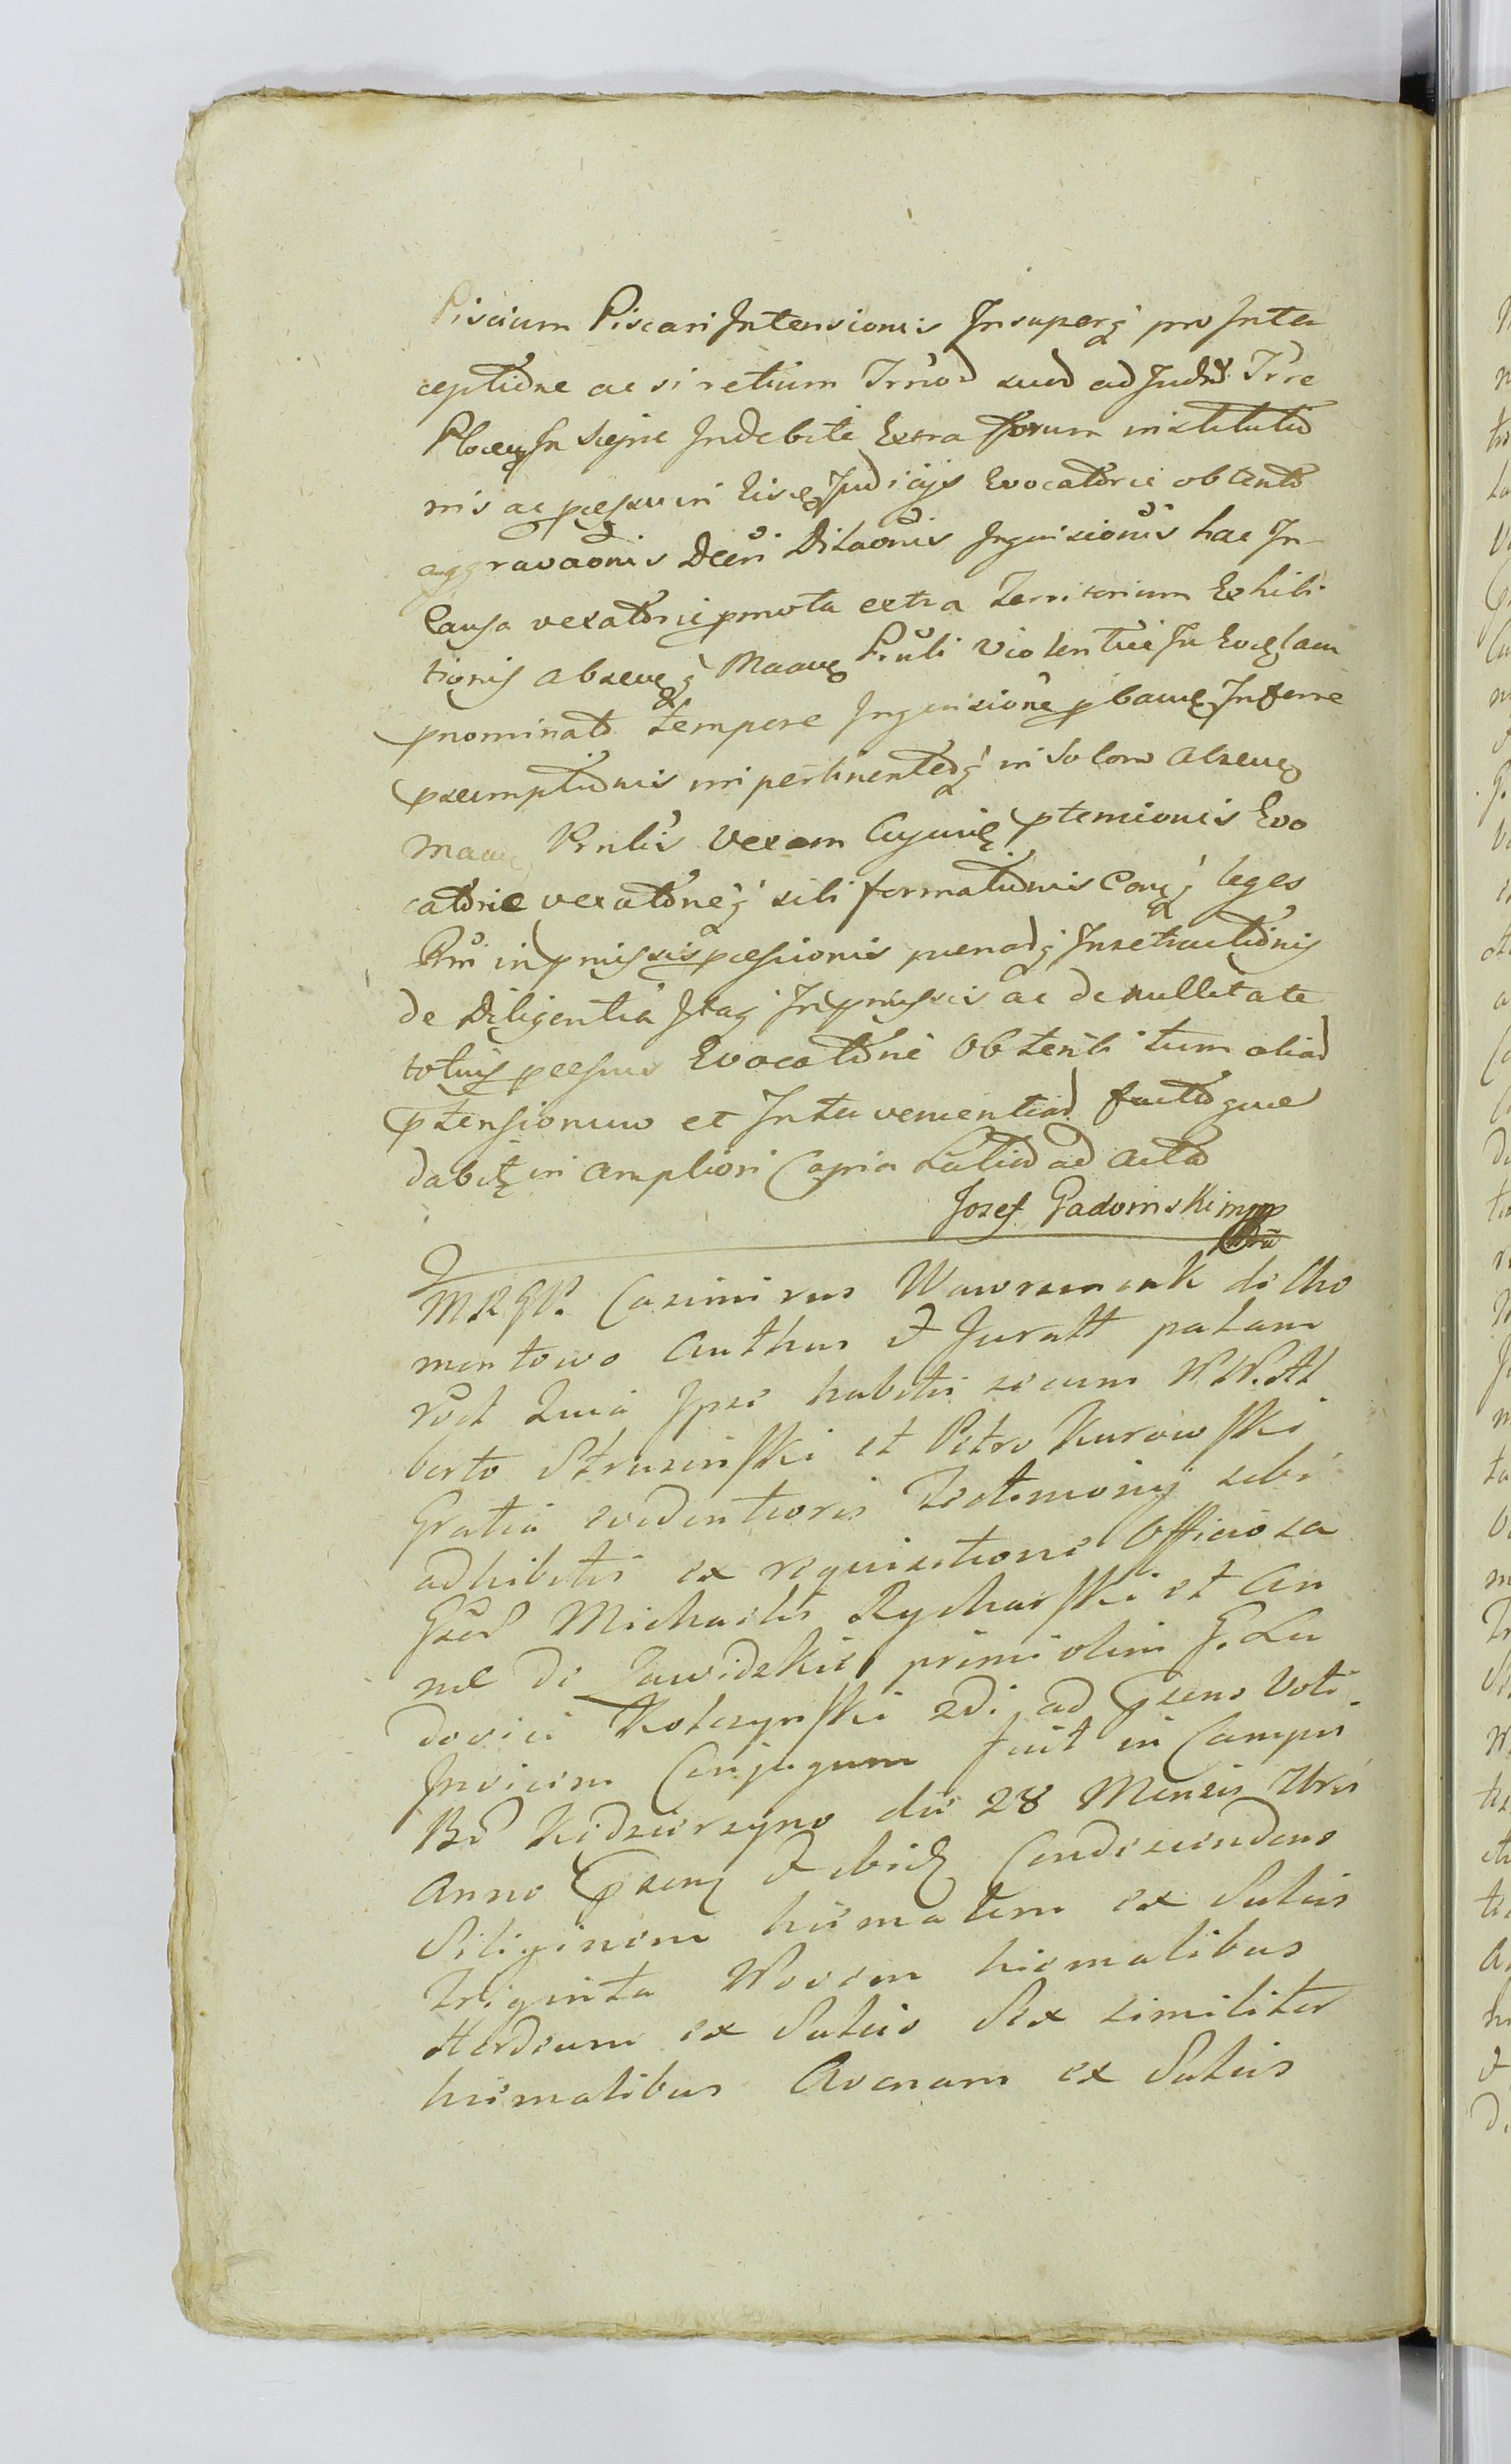 Piscium Piscari Intensionis Insuperq pro Inter
ceptione ac si retium Trrod suod ad Judm Trre
Plocen In Siepie Indebite Extra forum institutio
nis ac pcessum Eisq Judicijs Evocatorie obtento
aggravaonis Decri Dilaonis Inquisicionis hac In
Causa vexatorie pmota extra Territorium Exhibi
tionis absenq Maave Pnli violentive In
pnominato tempore Inquisicione pbave Inferre
psumptionis impertinenteq in Solam absenq
Maav Pnlis vexam ptensionis Evo
catorie vexatorieq sibi formationis Conq leges
Rni in pmissis pcessionis penaq Inretractionis
de Diligentia Itaq In pmissis ac de nullitate
totius pcessus Evocatorie Obtenti tum aliad
ptensionum et Intervenientiad factoque
dabit in ampliori Copia Latiud ad acta
Jozef Gadomski mpp
MRGR. Casimirus Wawrzeniak de Cho
mentowo Authus et Juratt palam
rect Quia Ipse habitis secum NN. Al
berto Struzinski et Petro Kurowski
Gratia evidentioris Testimonij sibi
adhibitis ex requisitione Officiosa
Gsod Michaelis Rycharski et An
nae de Zawidzkie primi olim G. Lu
dovici Kolczynski 2di ad psens Voti
Invicem Conjugum fuit in Campis
Bd Kędzierzyno die 28 Mensis Xbris
Anno psenq et ibidq Condescendens
Siliginem hiemalem ex Satis
triginta Novem hiemalibus
Hordeum ex Satis Sex similiter
hiemalibus Avenam ex Satis